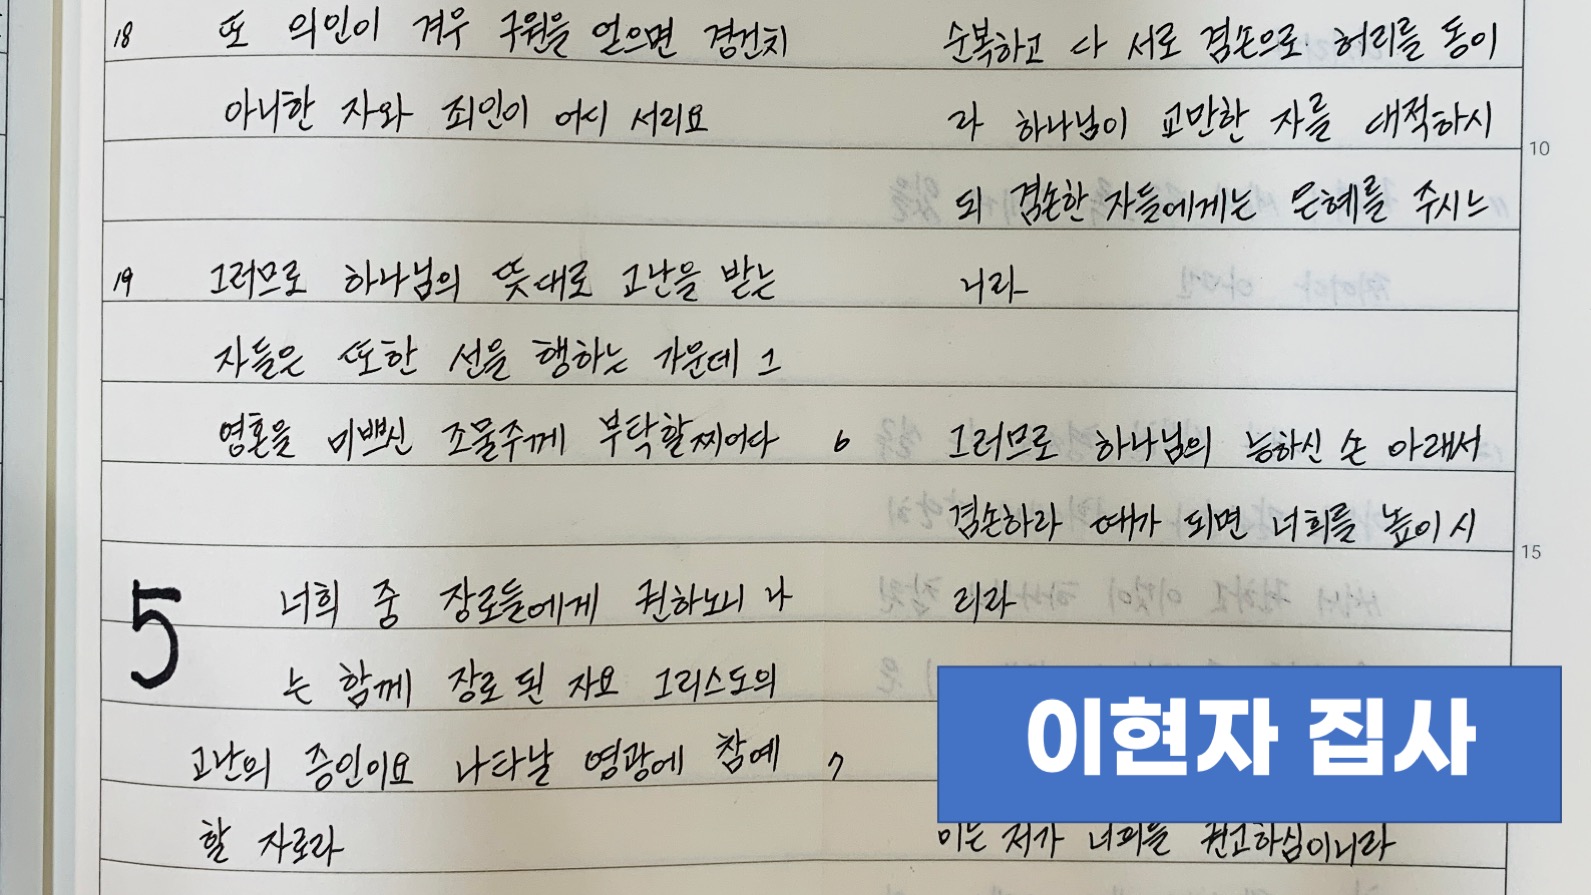 18 또 의인이 겨우 구원을 얻으면 경건치
아니한 자와 죄인이 어시 서리요
19 그러므로 하나님의 뜻대로 고난을 받는
자들은 또한 선을 행하는 가운데 그
영혼을 미쁘신 조물주께 부탁할찌어다
5 너희 중 장로들에게 권하노니 나
는 함께 장로 된 자요 그리스도의
고난의 증인이요 나타날 영광에 참예
할 자로라
순복하고 다 서로 겸손으로 허리를 동이
라 하나님이 교만한 자를 대적하시
10
되 겸손한 자들에게는 은혜를 주시느
니라
6 그러므로 하나님의 능하신 손 아래서
겸손하라 때가 되면 너희를 높이시
15
리라
7
이현자 집사
이는 저가 너희를 권고하심이니라